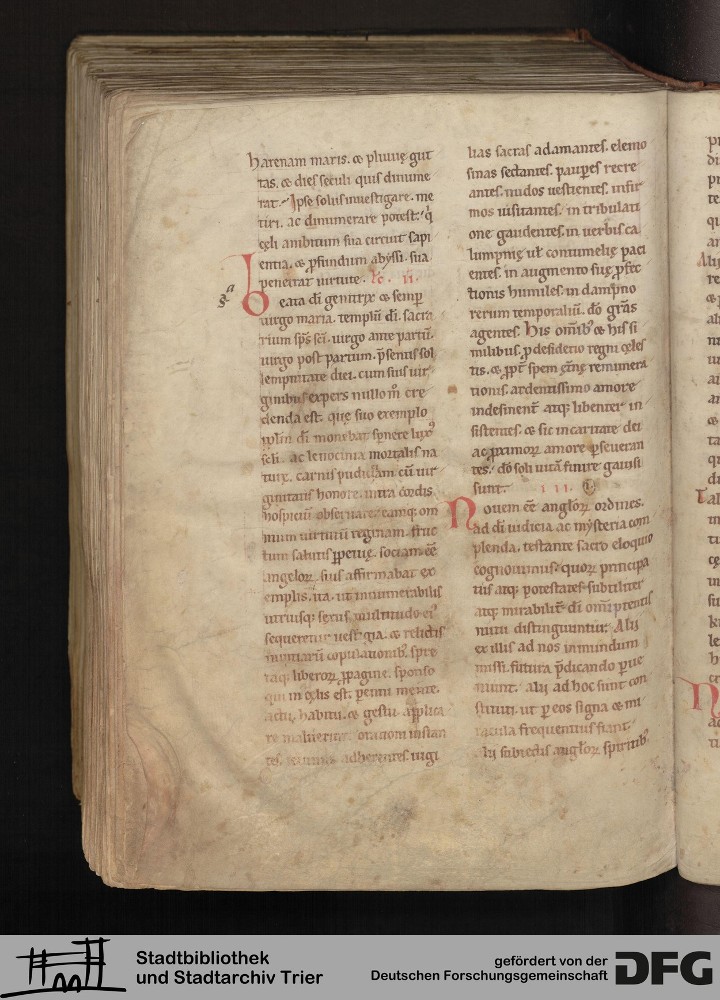 harenam maris. & pluuię gut
tas. & dies seculi quis dinume
rat. Ipse solus inuestigare. me
tiri. ac dinumerare potest. q̇
cęli ambitum sua circuit sapi
entia. & ꝓfundum abyssi. sua
penetrat uirtute. Lc. ii.
a
§
Beata dī genitrix & semꝑ
uirgo maria. templū dī. sacra
rium sp̄s sc̄i. uirgo ante partū.
uirgo post partum. p̄sentis sol
lempnitate diei. cum suis uir
ginibus expers nullo m̊ cre
denda est. quę suo exemplo
monebat spernere
sc̄li. ac lenocinia mortalis na
turę. carnis pudiciciam cū uir
ginitatis honore. intra cordis
hospiciū obseruare. eamq; om
nium uirtutū reginam. fruc
tum salutis ꝑpetuę. sociam ēē
angeloꝝ. suis affirmabat ex
emplis. ita. ut innumerabilis
utriusq; sexus multitudo ei᾽
sequeretur uestigia. & relictis
nuptiarū copulationib;. spre
taq; liberoꝝ ꝓpagine. sponso
qui in cęlis est. ꝑenni mente.
actu. habitu. & gestu. applica
re maluerint. orationi instan
tes. ieiuniis adherentes. uigi
lias sacras adamantes. elemo
sinas sectantes. pauꝑes recre
antes. nudos uestientes. infir
mos uisitantes. in tribulati
one gaudentes. in uerbis ca
lumpnię uł contumelię paci
entes. in augmento suę ꝓfec
tionis humiles. in dampno
rerum temporaliū. dō grās
agentes. His om̄ib; & his si
milibus. ꝓ desiderio regni cęles
tis. & ꝓpt̄ spem ęt̄nę remunera
tionis. ardentissimo amore
indesinent̄ atq; libenter in
sistentes. & sic in caritate dei
ac ꝓximoꝝ amore ꝑseueran
tes. dō soli uitā finire gauisi
sunt. iii.
Nouem ēē angłoꝝ ordines.
ad dī iudicia ac mysteria com
plenda. testante sacro eloquio
cognouimus. quoꝝ principa
tus atq; potestates subtiliter
atq; mirabilit̄ dī om̄ipotentis
nutu distinguuntur. Alii
ex illis ad nos in mundum
missi. futura p̄dicando ꝑue
niunt. alii ad hoc sunt con
stituti. ut ꝑ eos signa & mi
racula frequentius fiant.
Alii subiectis angłoꝝ spiritib;
Stadtbibliothek
und Stadtarchiv Trier
gefördert von der
Deutschen Forschungsgemeinschaft
DFG